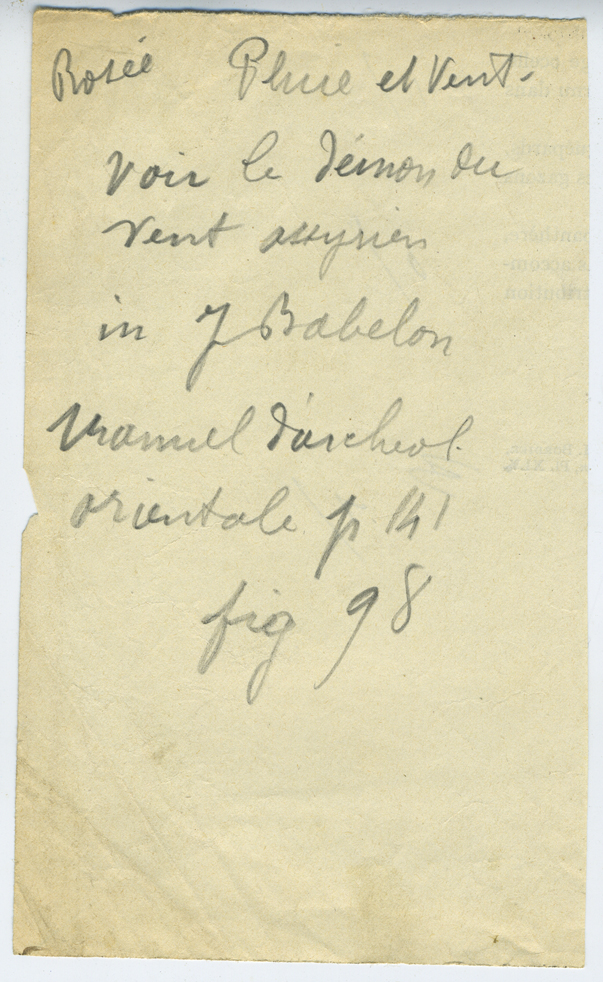 Rosée Pluie et Vent.
voir le démon du
vent assyrien
in J Babelon
Manuel d'archeol.
orientale p 141
fig 98